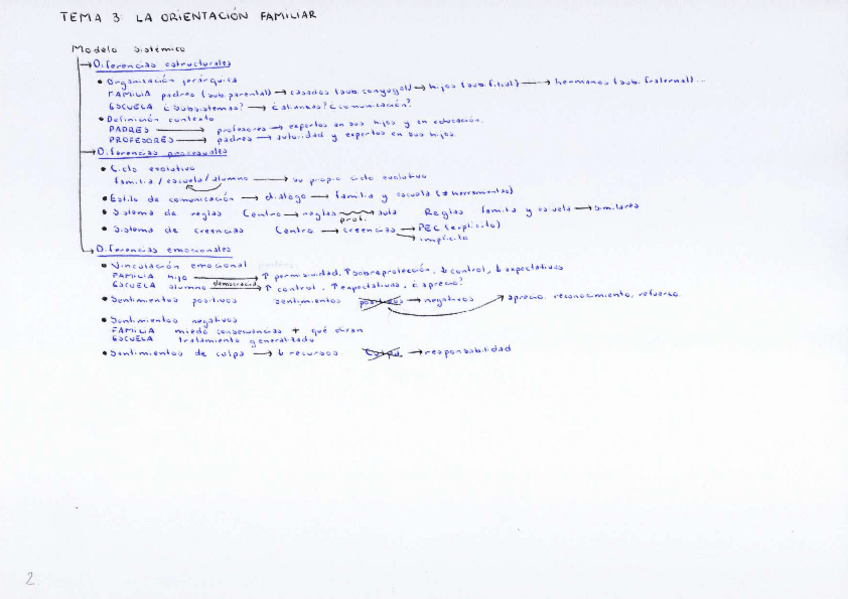 TEMA 3: LA ORIENTACIÓN FAMILIAR
Modelo sistémico
→ Diferencias estructurales
• Organización jerárquica
FAMILIA padres (sub. parental) → casados (sub. conyugal) → hijos (sub. filial) → hermanos (sub. fraternal)...
ESCUELA ¿subsistemas? → ¿alianzas? ¿comunicación?
• Definición contexto
PADRES → profesores → expertos en sus hijos y en educación.
PROFESORES → padres → autoridad y expertos en sus hijos.
→ Diferencias procesuales
• Ciclo evolutivo
familia / escuela / alumno → su propio ciclo evolutivo
• Estilo de comunicación → diálogo → familia y escuela (≠ herramientas)
• Sistema de reglas Centro → reglas → aula Reglas familia y escuela → similares
prof.
• Sistema de creencias Centro → creencias → PEC (explícito)
→ implícito
→ Diferencias emocionales
• Vinculación emocional
FAMILIA hijo → ↑ permisividad, ↑ sobreprotección, ↓ control, ↓ expectativas
ESCUELA alumno democracia → ↑ control, ↑ expectativas, ¿aprecio?
• Sentimientos positivos sentimientos positivos → negativos → aprecio, reconocimiento, refuerzo.
• Sentimientos negativos
FAMILIA miedo consecuencias + qué dirán
ESCUELA tratamiento generalizado
• Sentimientos de culpa → ↓ recursos culpa → responsabilidad
2